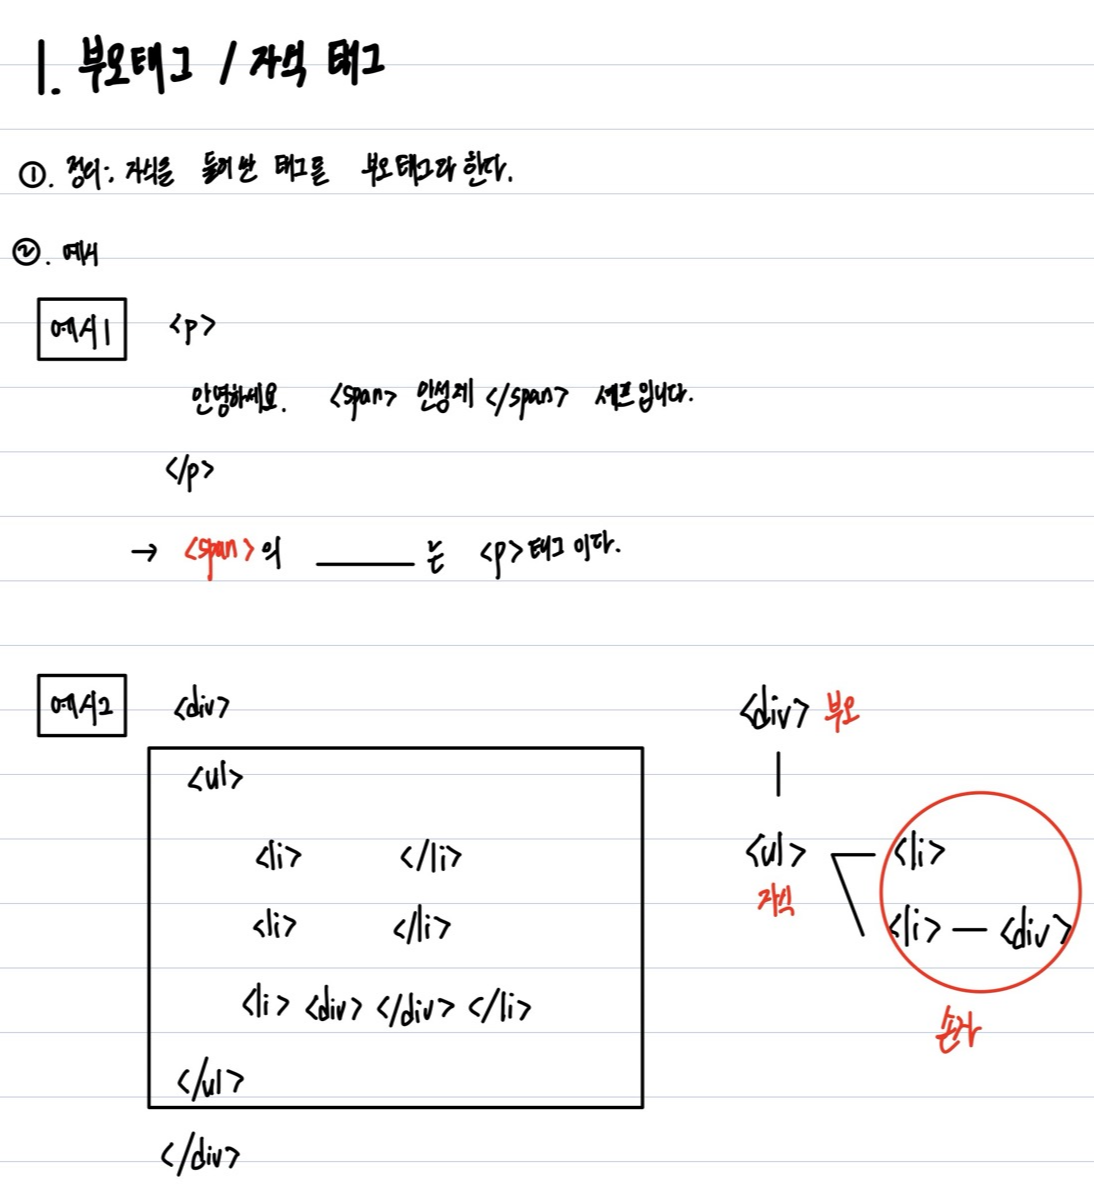 1. 부모태그 / 자식 태그
①. 정의: 자식을 둘러싼 태그를 부모태그라 한다.
②. 예시
예시1 <p>
안녕하세요. <span> 안성재 </span> 셰프입니다.
</p>
→ <span>의 ______ 는 <p>태그 이다.
예시2 <div>
<ul>
<li> </li>
<li> </li>
<li> <div> </div> </li>
</ul>
</div>
<div> 부모
<ul> <li>
자식
<li> — <div>
손자